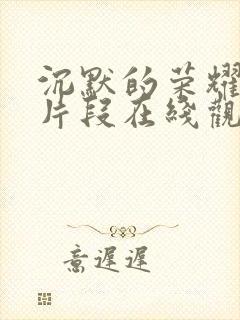 沉默的荣耀
片段在线觀
意遲遲